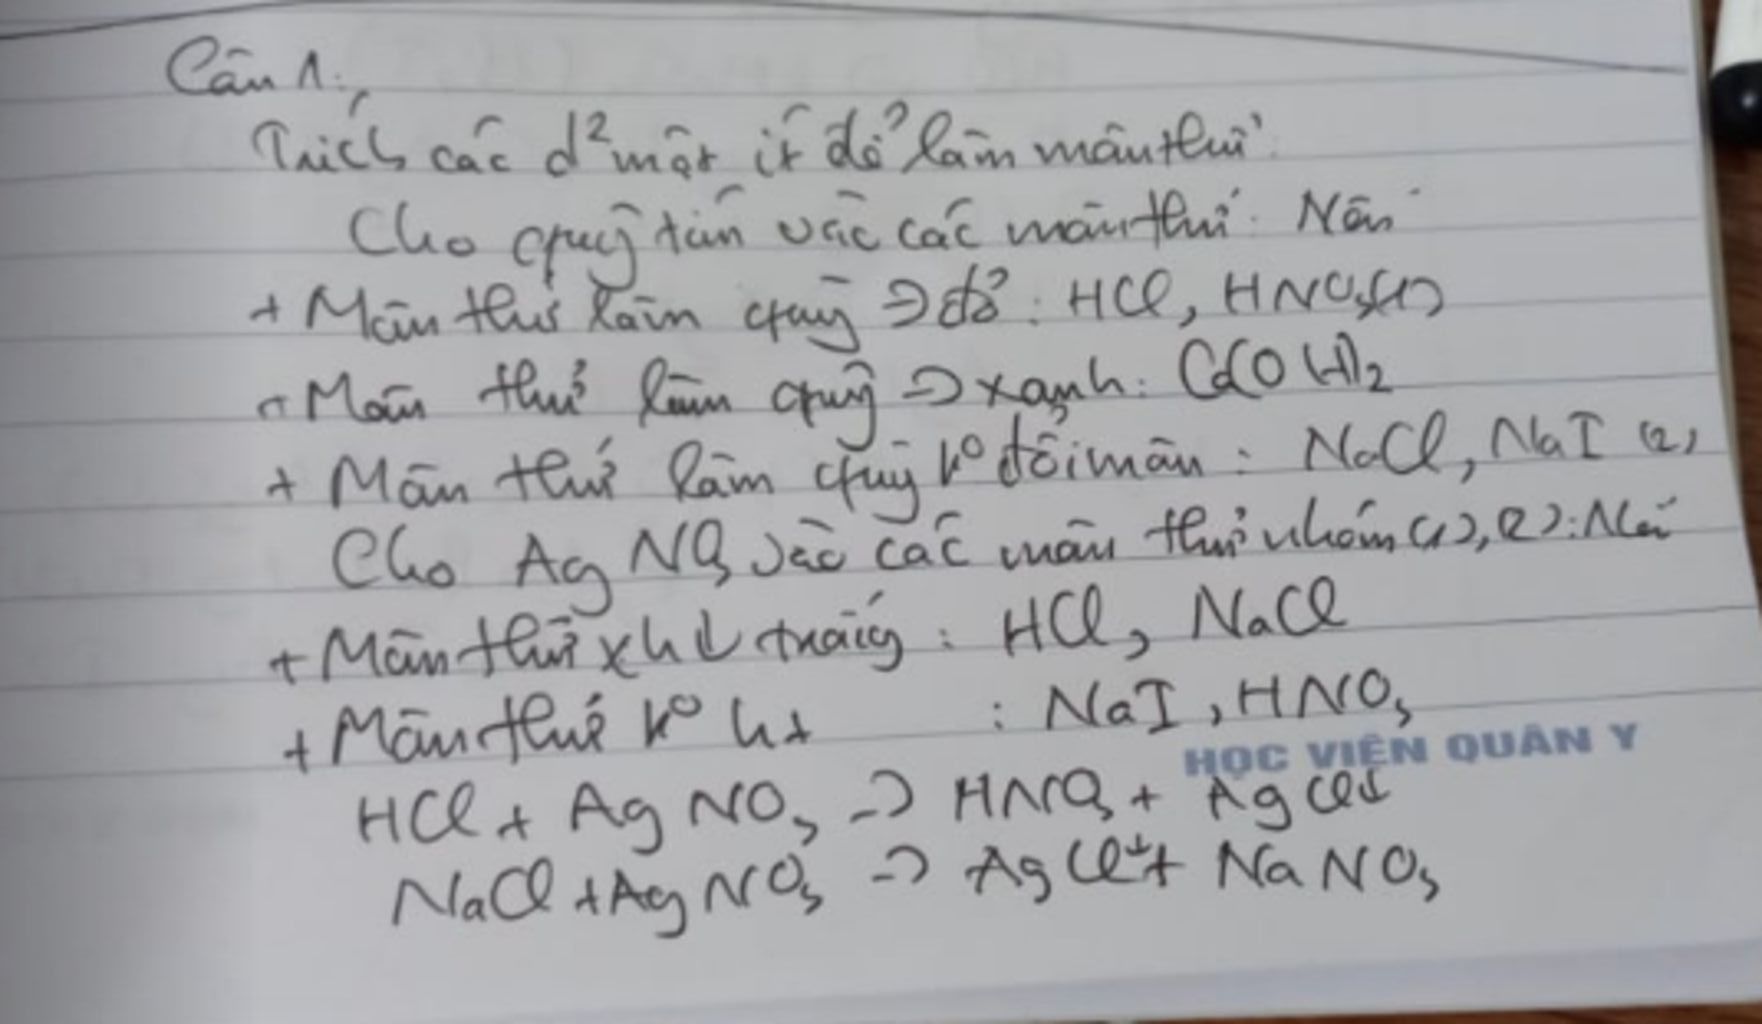 Câu 1:
Trích các d² một ít để làm mẫu thử.
Cho quỳ tím vào các mẫu thử. Nếu
+ Mẫu thử làm quỳ → đỏ : HCl, HNO3 (1)
+ Mẫu thử làm quỳ → xanh : Ca(OH)2
+ Mẫu thử làm quỳ k° đổi màu : NaCl, NaI (2)
Cho AgNO3 vào các mẫu thử nhóm (1), (2) : Nếu
+ Mẫu thử xh ↓ trắng : HCl, NaCl
+ Mẫu thử k° ht : NaI, HNO3
HỌC VIỆN QUÂN Y
HCl + AgNO3 → HNO3 + AgCl↓
NaCl + AgNO3 → AgCl↓ + NaNO3